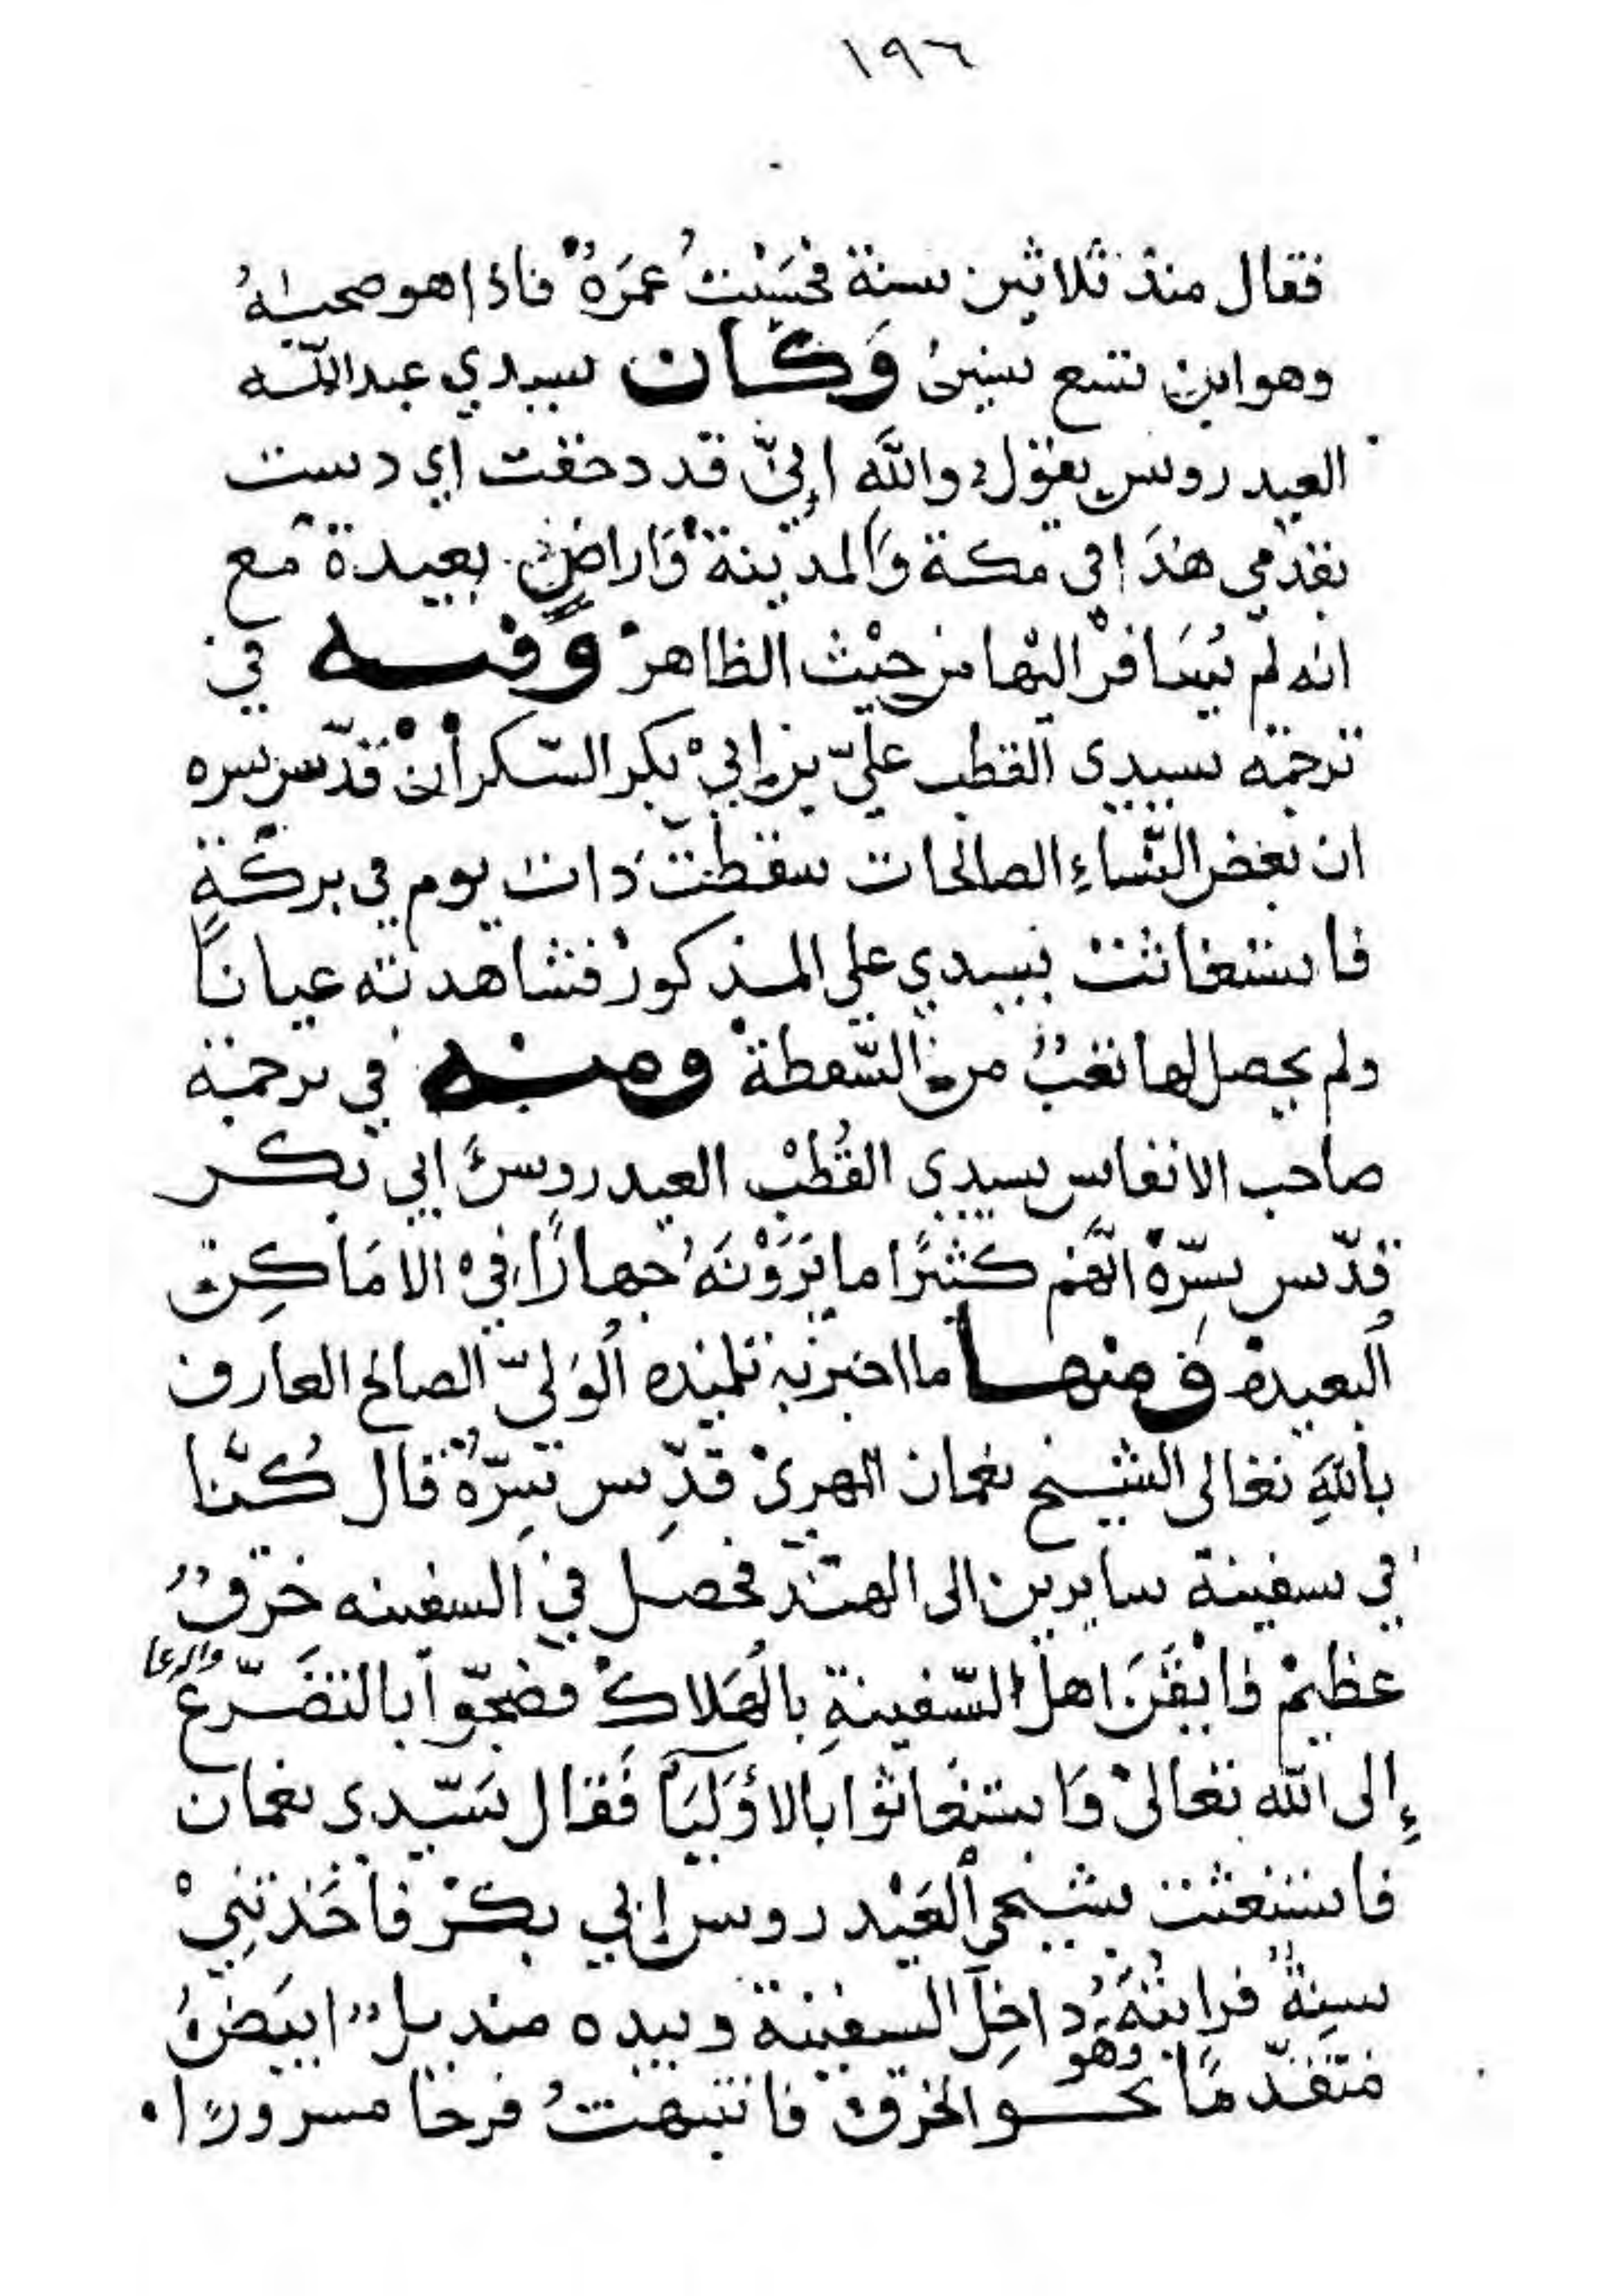 ١٩٦
فقال منذ ثلاثين سنة فحَسَبْتُ عمرَهُ فاذا هو صحبهُ
وهو ابن تسع سنين وَكَان سيدي عبدالله
العيدروس يقول والله إنّي قد دحقت اي دست
بقدمي هذا في مكة وَالمدينة وَاراضٍ بعيدة مع
انه لم يُسَافرْ اليْها من حيْث الظاهر وَفيه في
ترجمته سيدي القطب عليّ بن إبيْ بكر السّكرأن قدّس سره
ان بعض النّساءِ الصالحات سقطتْ ذات يوم في بركةٍ
فاستغاثت بسيدي علي المذكورْ فشاهدته عياناً
ولم يحصل لها تعبٌ من السّقطة ومنه في ترجمة
صاحب الانفاس سيدي القُطْب العيدروس ابي بكر
قدّس سِرّهْ انّهُم كثيرًا ما يَرَوْنَهُ جهارًا فيْ الامَاكِن
البعيدة فمنها ما اخبر به تلميذه الوَليّ الصالح العارف
باللهِ تعالى الشيخ نعمان المهريْ قدِّس سِرّهُ قال كُنّا
في سفينة سايرين الى الهند فحصل في السفينه خرقٌ
عظيمْ فايْقَنَ اهلُ السّفينةِ بالهَلاكْ فضجّوا بالتضَرّعْ والدعا
إلى الله تعالىْ وَاستغَاثوا بالأوْلَيَآ فَقال سَيّدي نعمان
فاستغثت بشيخي العَيْدروس إبي بكرْ فأخَذتنِيْ
سِنةٌ فرايتهُ داخِل السفينة وبيده منديلٌ ابيَضُ
وهو
متقدّمًا نحو الخرق فانتبهتُ فرحًا مسرورًا